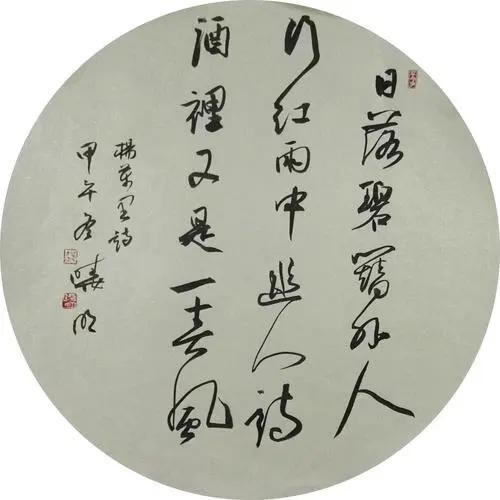 日落碧簪外人
行紅雨中幽人詩
酒裡又是一春風
楊萬里詩
甲午冬
明